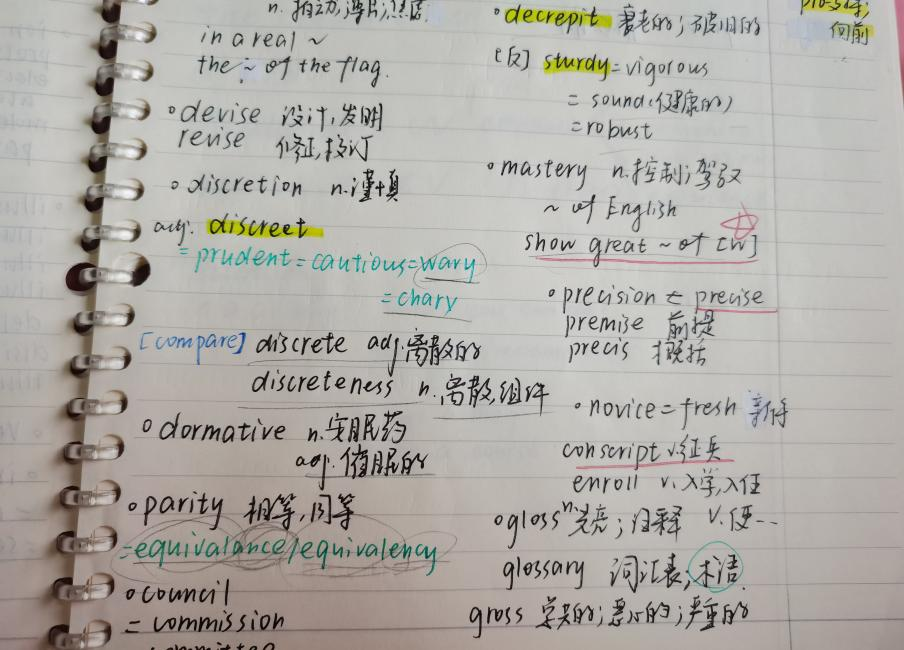 n. 拍动,薄片,
in a real ~
the ~ of the flag.
devise 设计,发明
revise 修正,校订
discretion n.谨慎
adj. discreet
=prudent=cautious=wary
=chary
[compare] discrete adj.离散的
discreteness n.离散,组件
dormative n.安眠药
adj.催眠的
parity 相等,同等
=equivalance/equivalency
council
=commission
decrepit 衰老的;破旧的
[反] sturdy=vigorous
=sound(健康的)
=robust
mastery n.控制;驾驭
~ of English
show great ~ of [W]
precision ← precise
premise 前提
precis 概括
novice=fresh 新手
conscript v.征兵
enroll v.入学,入伍
gloss n.光亮;注释 v.使...
glossary 词汇表;术语
gross 总共的;恶心的;严重的
向前